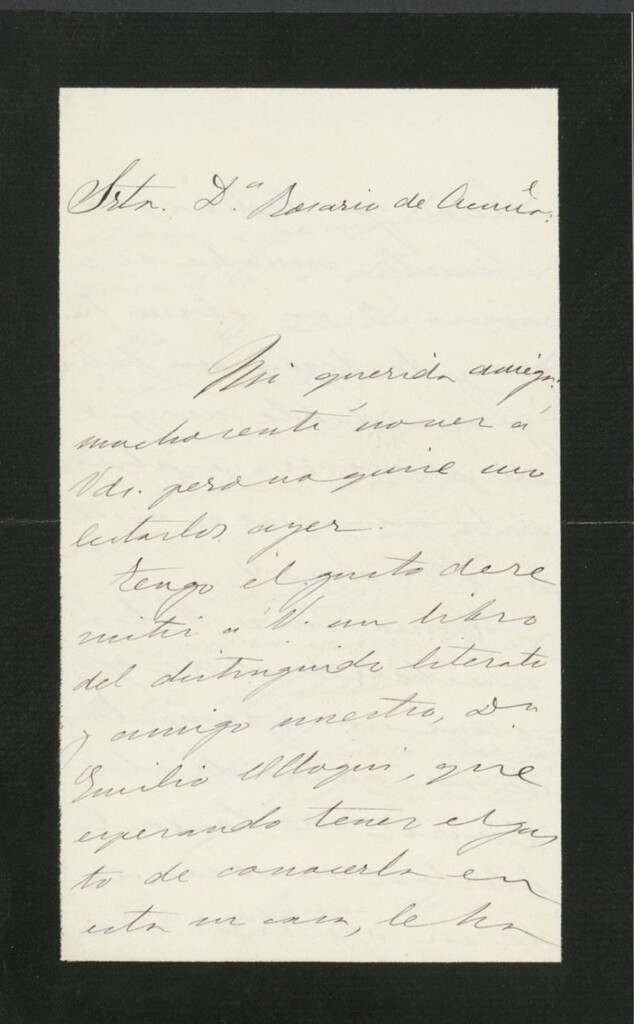 Srta. D.ª Rosario de Acuña:
Mi querida amiga:
mucho sentí no ver á
Vds. pero no quise mo
lestarlos ayer.
Tengo el gusto de re
mitir á V. un libro
del distinguido literato
y amigo nuestro, Dn
Emilio
, que
esperando tener el gus
to de conocerla en
esta su casa, le ha